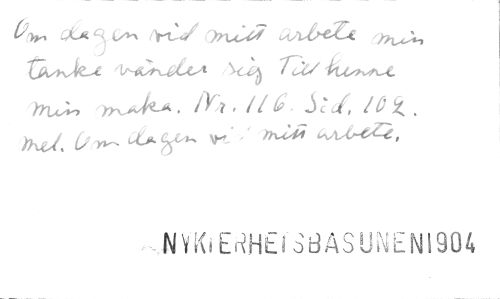 Om dagen vid mitt arbete min
tanke vänder sig Till henne
min maka. Nr. 116. Sid. 102.
mel. Om dagen vi mitt arbete.
NYKTERHETSBASUNEN 1904